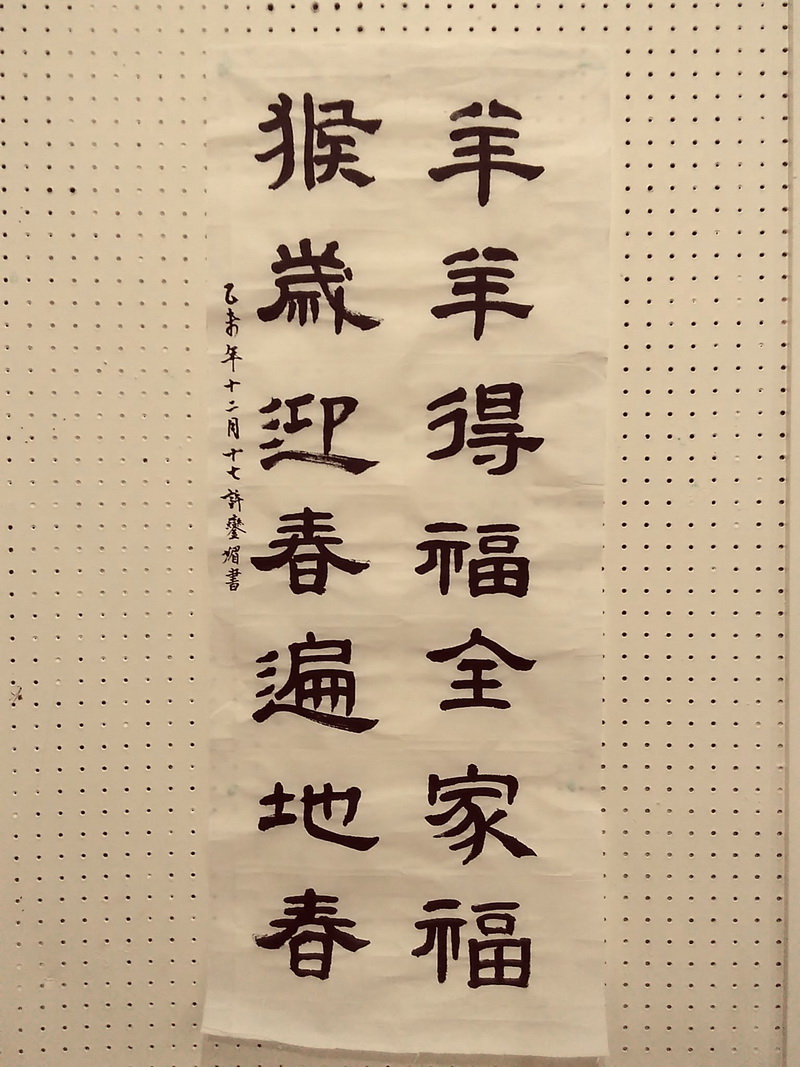 羊羊得福全家福
猴歲迎春遍地春
乙未年十二月十七許鑾媚書